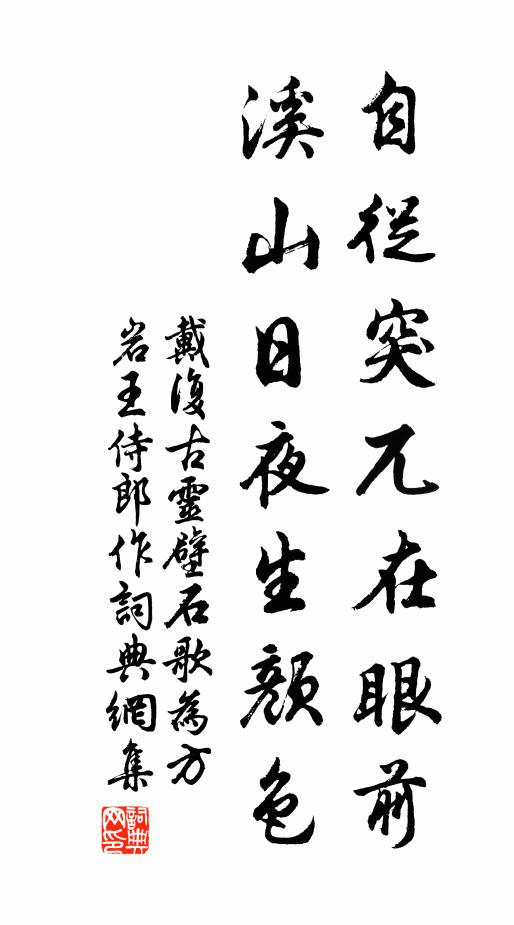 自從突兀在眼前
溪山日夜生顏色
戴復古靈壁石歌為方
岩王侍郎作詞典網集
詞典網印